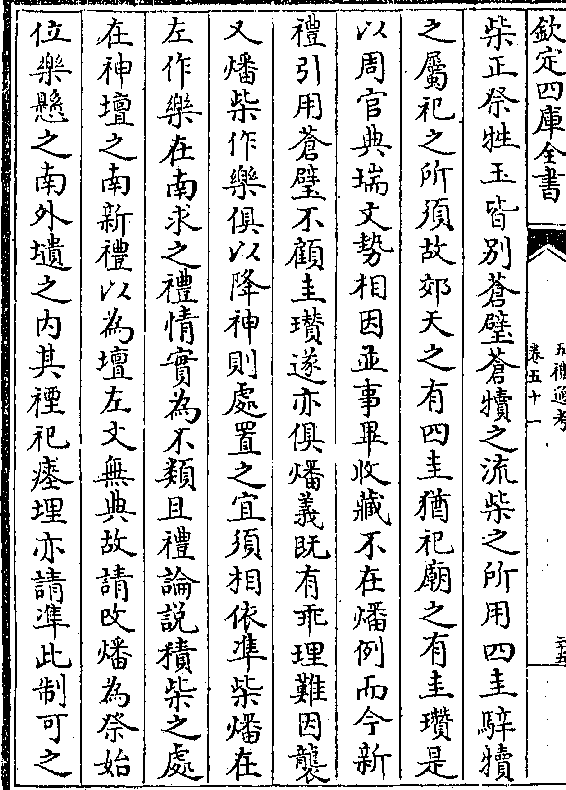 欽定四庫全書
五禮通考
卷五十一
柴正祭牲玉皆别蒼璧蒼犢之流柴之所用四圭騂犢
之屬祀之所須故郊天之有四圭猶祀廟之有圭瓚是
以周官典瑞文勢相因並事畢收藏不在燔例而今新
禮引用蒼璧不顧圭瓚遂亦俱燔義既有乖理難因襲
又燔柴作樂俱以降神則處置之宜須相依準柴燔在
左作樂在南求之禮情實為不類且禮論説積柴之處
在神壇之南新禮以為壇左文無典故請改燔為祭始
位樂懸之南外壝之内其禋祀瘞埋亦請準此制可之